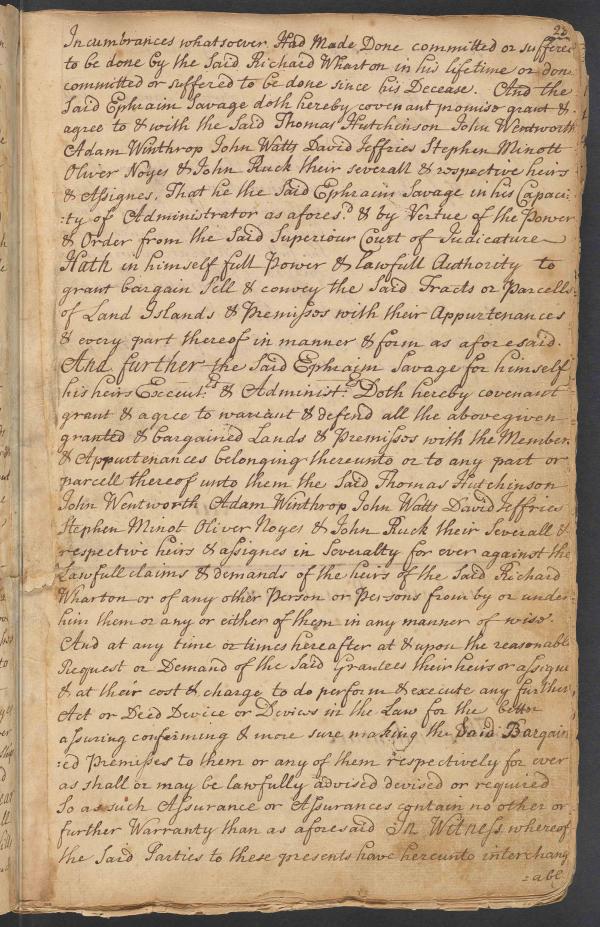 23
Incumbrances whatsoever Had Made Done committed or suffered
to be done by the Said Richard Wharton in his lifetime or done
committed or suffered to be done since his Decease. And the
Said Ephraim Savage doth hereby covenant promise grant &
agree to & with the Said Thomas Hutchinson John Wentworth
Adam Winthrop John Watts David Jeffries Stephen Minott
Oliver Noyes & John Ruck their severall & respective heirs
& Assignes, That he the Said Ephraim Savage in his Capaci:
:ty of Administrator as afores.d & by Vertue of the Power
& Order from the Said Superiour Court of Judicature
Hath in himself full Power & lawfull Authority to
grant bargain Sell & convey the Said Tracts or Parcells
of Land Islands & Premisses with their Appurtenances
& every part thereof in manner & form as aforesaid.
And further the Said Ephraim Savage for himself
his heirs Execut.rs & Administ.rs Doth hereby covenant
grant & agree to warrant & defend all the above given
granted & bargained Lands & Premisses with the Members
& Appurtenances belonging thereunto or to any part or
parcell thereof unto them the Said Thomas Hutchinson
John Wentworth Adam Winthrop John Watts David Jeffries
Stephen Minot Oliver Noyes & John Ruck their Severall &
respective heirs & assignes in Severalty for ever against the
Lawfull claims & demands of the heirs of the Said Richard
Wharton or of any other Person or Persons from by or under
him them or any or either of them in any manner of wise.
And at any time or times hereafter at & upon the reasonable
Request or Demand of the Said Grantees their heirs or assigns
& at their cost & charge to do perform & execute any further
Act or Deed Device or Devices in the Law for the better
assuring confirming & more sure making the Said Bargain
:ed Premisses to them or any of them respectively for ever
as shall or may be lawfully advised devised or required
So as such Assurance or Assurances contain no other or
further Warranty than as aforesaid In Witness whereof
the Said Parties to these presents have hereunto interchang
:abl